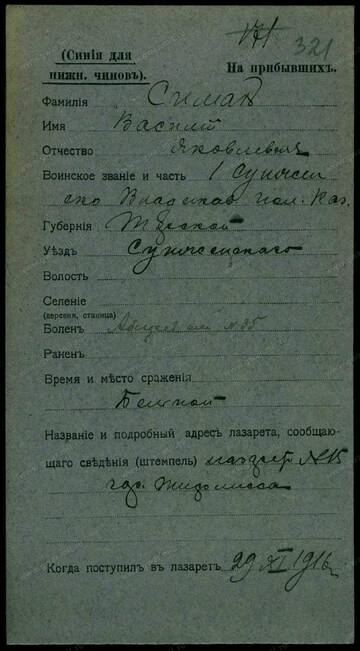 171 321
(Синія для
нижн. чиновъ).
На прибывшихъ.
Фамилія Симак
Имя Василий
Отчество Яковлевичъ
Воинское званіе и часть 1 Сунжен
ско Владикав пол. Каз.
Губернія Терской
Уѣздъ Сунженскаго
Волость
Селеніе
(деревня, станица)
Боленъ №35
Раненъ
Время и мѣсто сраженія
Назва­ніе и подробный адресъ лазарета, сообщаю-
щаго свѣдѣнія (штемпель) лазарет №15
гор.
Когда поступилъ въ лазаретъ 29 XI 1916